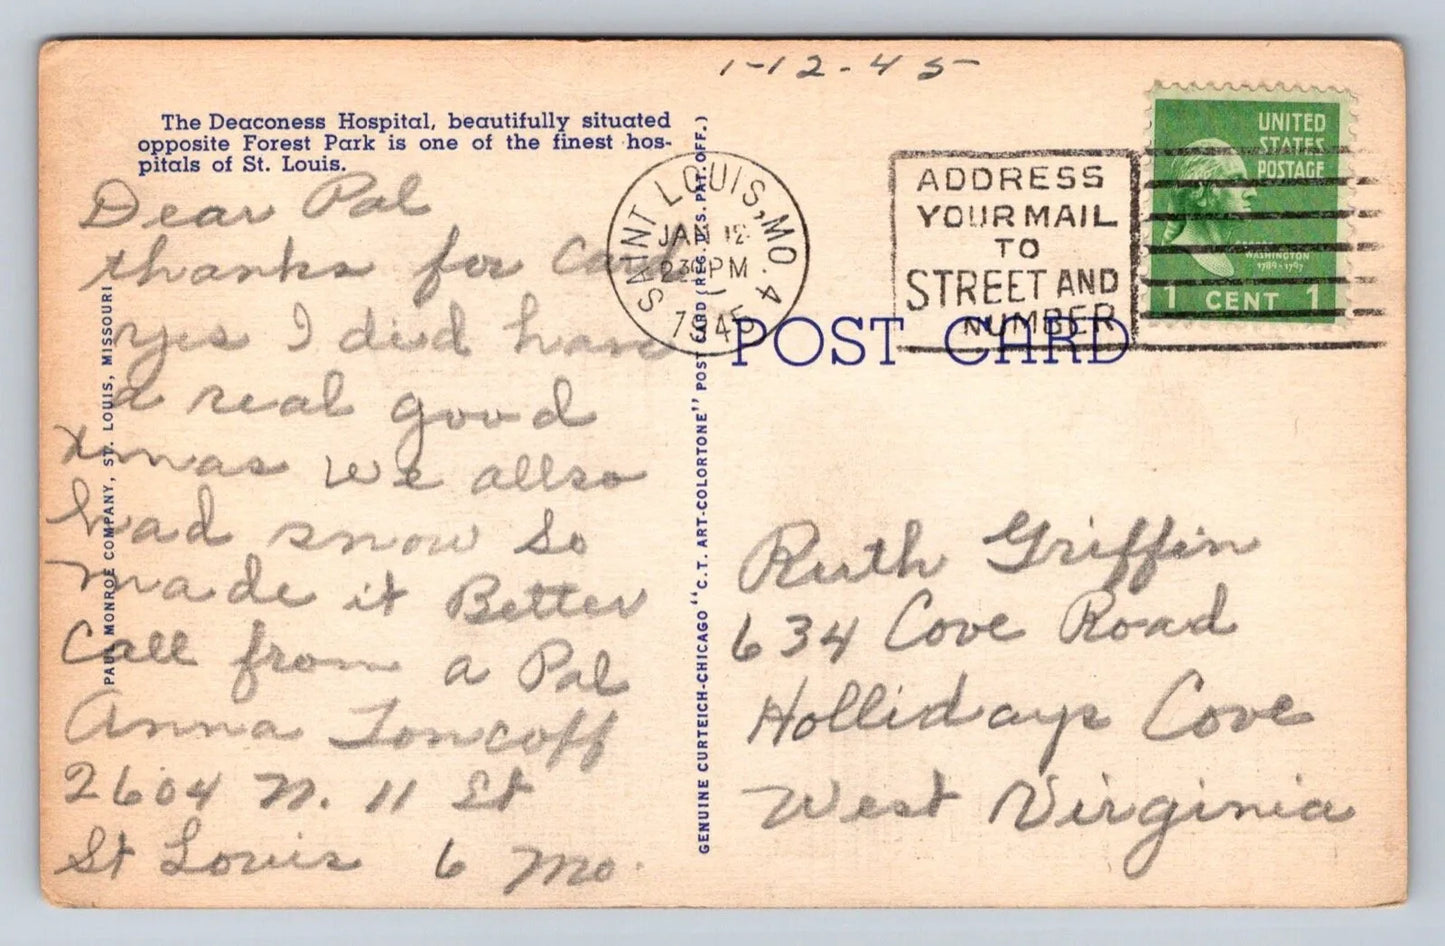 1-12-45
The Deaconess Hospital, beautifully situated
opposite Forest Park is one of the finest hos-
pitals of St. Louis.
Dear Pal
thanks for Card
yes I did have
a real good
Xmas we allso
had snow so
made it Better
Call from a Pal
Anna Toncoff
2604 N. 11 St
St Louis 6 Mo.
PAUL MONROE COMPANY, ST. LOUIS, MISSOURI
GENUINE CURTEICH-CHICAGO "C.T. ART-COLORTONE" POST CARD (REG. U.S. PAT. OFF.)
SAINT LOUIS, MO. 4
JAN 12
230 PM
1945
ADDRESS
YOUR MAIL
TO
STREET AND
NUMBER
UNITED
STATES
POSTAGE
WASHINGTON
1789-1797
1 CENT 1
POST CARD
Ruth Griffin
634 Cove Road
Hollidays Cove
West Virginia